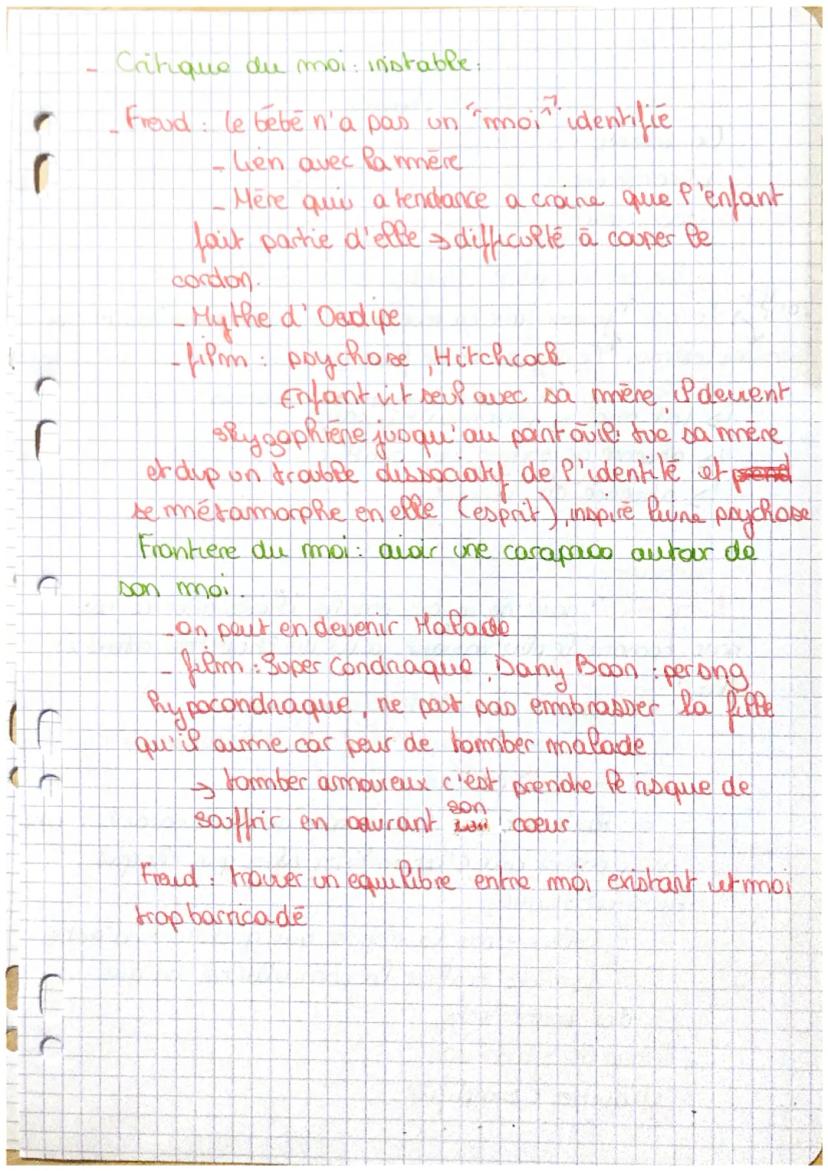 - Critique du moi : instable.
- Freud : le bébé n'a pas un "moi" identifié
- lien avec la mère
- Mère qui a tendance a craine que l'enfant
fait partie d'elle → difficulté à couper le
cordon.
- Mythe d'Oedipe
- film : psychose, Hitchcock
Enfant vit seul avec sa mère, il devient
skyzophrène jusqu'au point où il tue sa mère
et dvlp un trouble dissociatif de l'identité et prend
se métamorphe en elle (esprit), inspiré d'une psychose
Frontière du moi : avoir une carapace autour de
son moi.
- on peut en devenir Malade
- film : Super Condriaque, Dany Boon : perso ng
hypocondriaque, ne peut pas embrasser la fille
qu'il aime car peur de tomber malade
→ tomber amoureux c'est prendre le risque de
souffrir en ouvrant son coeur
Freud : trouver un equilibre entre moi existant et moi
trop barricadé